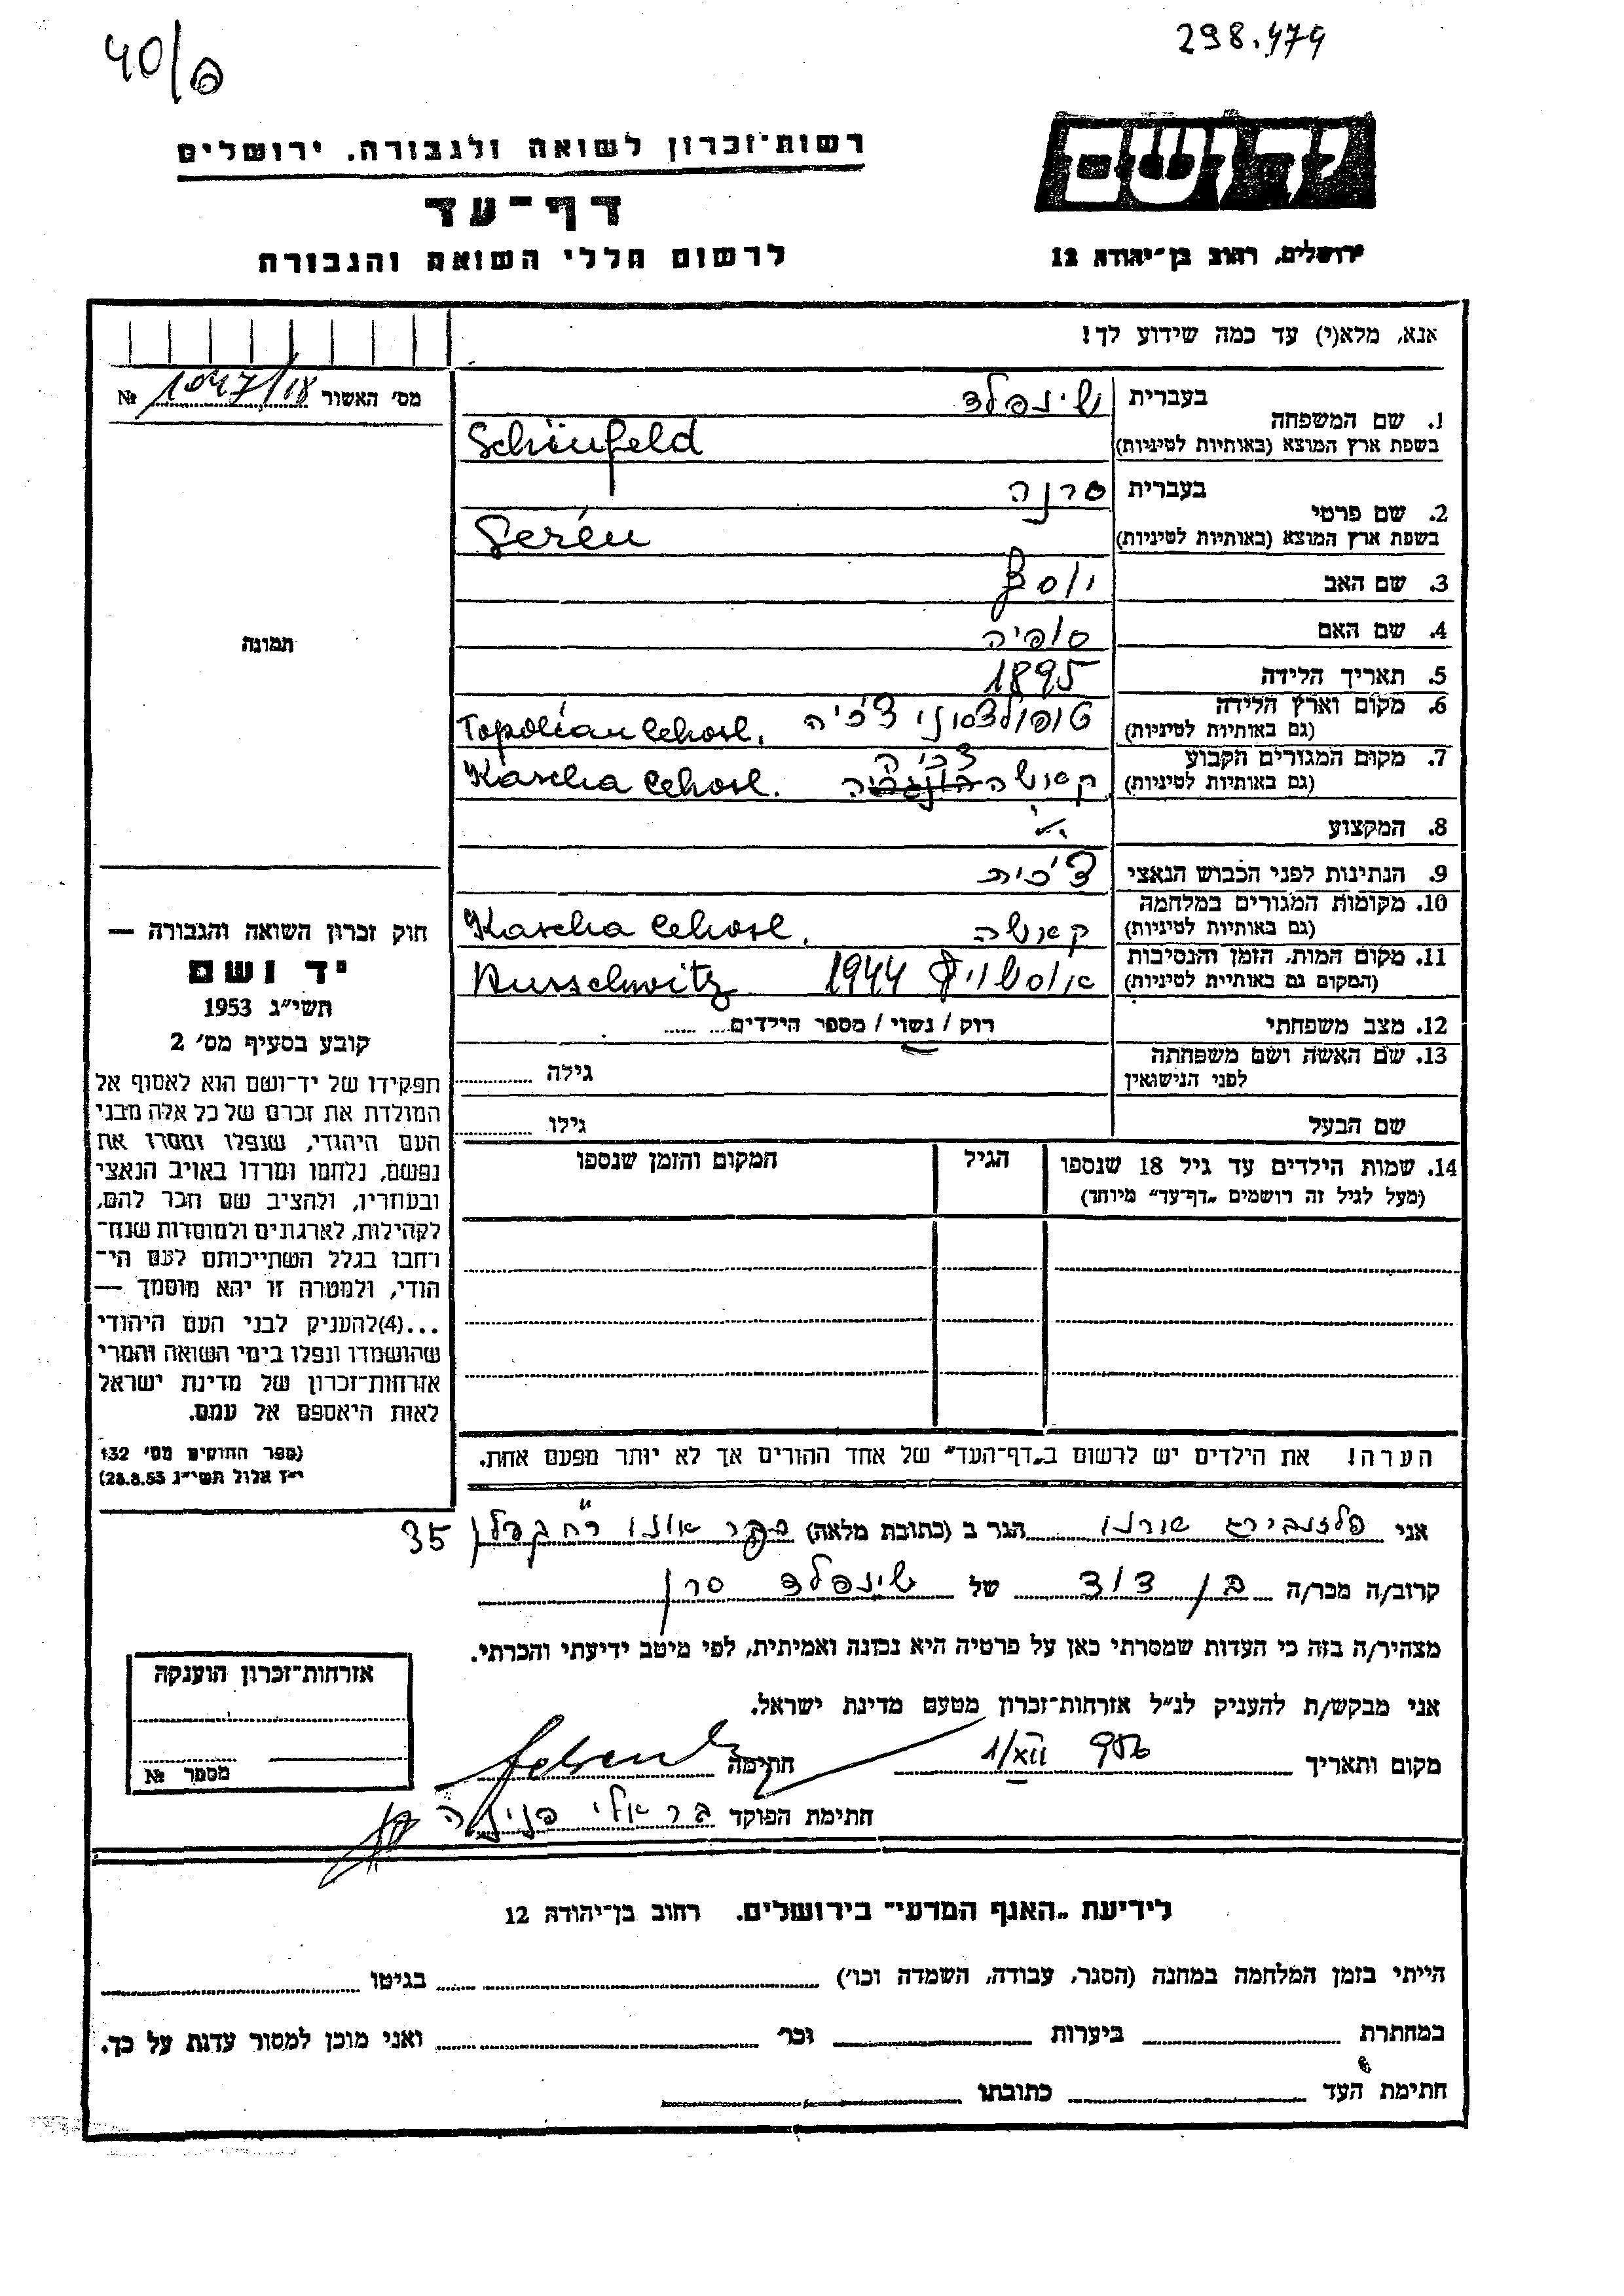 40/פ
298.474
רשות־זכרון לשואה ולגבורה. ירושלים
דף־עד
לרשום חללי השואה והגבורה
יד ושם
ירושלים, רחוב בן־יהודה 12
אנא, מלא(י) עד כמה שידוע לך!
מס׳ האשור 1047/18 №
תמונה
1. שם המשפחה בעברית שינפלד
בשפת ארץ המוצא (באותיות לטיניות) Schönfeld
2. שם פרטי בעברית סרנה
בשפת ארץ המוצא (באותיות לטיניות) Serén
3. שם האב יוסף
4. שם האם סופיה
5. תאריך הלידה 1895
6. מקום וארץ הלידה
(גם באותיות לטיניות) צ׳כיה Topolčan Cehosl.
7. מקום המגורים הקבוע צ׳כיה
(גם באותיות לטיניות) קאשה Kascha Cehosl.
8. המקצוע
9. הנתינות לפני הכבוש הנאצי צ׳כית
10. מקומות המגורים במלחמה
(גם באותיות לטיניות) קאשה Kascha Cehosl.
11. מקום המות, הזמן והנסיבות
(המקום גם באותיות לטיניות) אוסשויץ 1944 Ausschwitz
12. מצב משפחתי רוק / נשוי / מספר הילדים
13. שם האשה ושם משפחתה
לפני הנישואין גילה
שם הבעל גילו
14. שמות הילדים עד גיל 18 שנספו הגיל המקום והזמן שנספו
(מעל לגיל זה רושמים „דף־עד״ מיוחד)
הערה! את הילדים יש לרשום ב„דף־העד״ של אחד ההורים אך לא יותר מפעם אחת.
חוק זכרון השואה והגבורה —
יד ושם
תשי״ג 1953
קובע בסעיף מס׳ 2
תפקידו של יד־ושם הוא לאסוף אל
המולדת את זכרם של כל אלה מבני
העם היהודי, שנפלו ומסרו את
נפשם, נלחמו ומרדו באויב הנאצי
ובעוזריו, ולהציב שם וזכר להם,
לקהילות, לארגונים ולמוסדות שנח־
רבו בגלל השתייכותם לעם הי־
הודי, ולמטרה זו יהא מוסמך —
...(4)להעניק לבני העם היהודי
שהושמדו ונפלו בימי השואה והמרי
אזרחות־זכרון של מדינת ישראל
לאות היאספם אל עמם.
(ספר החוקים מס׳ 132
י״ז אלול תשי״ג 28.8.53)
אני פלזנבורג שורנו הגר ב (כתובת מלאה) אונו רח׳ קפלן 35
קרוב/ה מכר/ה בן דוד של שינפלד סרן
מצהיר/ה בזה כי העדות שמסרתי כאן על פרטיה היא נכונה ואמיתית, לפי מיטב ידיעתי והכרתי.
אני מבקש/ת להעניק לנ״ל אזרחות־זכרון מטעם מדינת ישראל.
מקום ותאריך 1/XII 956 חתימה
חתימת הפוקד בר אלי פנינה
אזרחות־זכרון הוענקה
מספר №
לידיעת „האגף המדעי״ בירושלים. רחוב בן־יהודה 12
הייתי בזמן המלחמה במחנה (הסגר, עבודה, השמדה וכו׳) בגיטו
במחתרת ביערות וכו׳ ואני מוכן למסור עדות על כך.
חתימת העד כתובתו